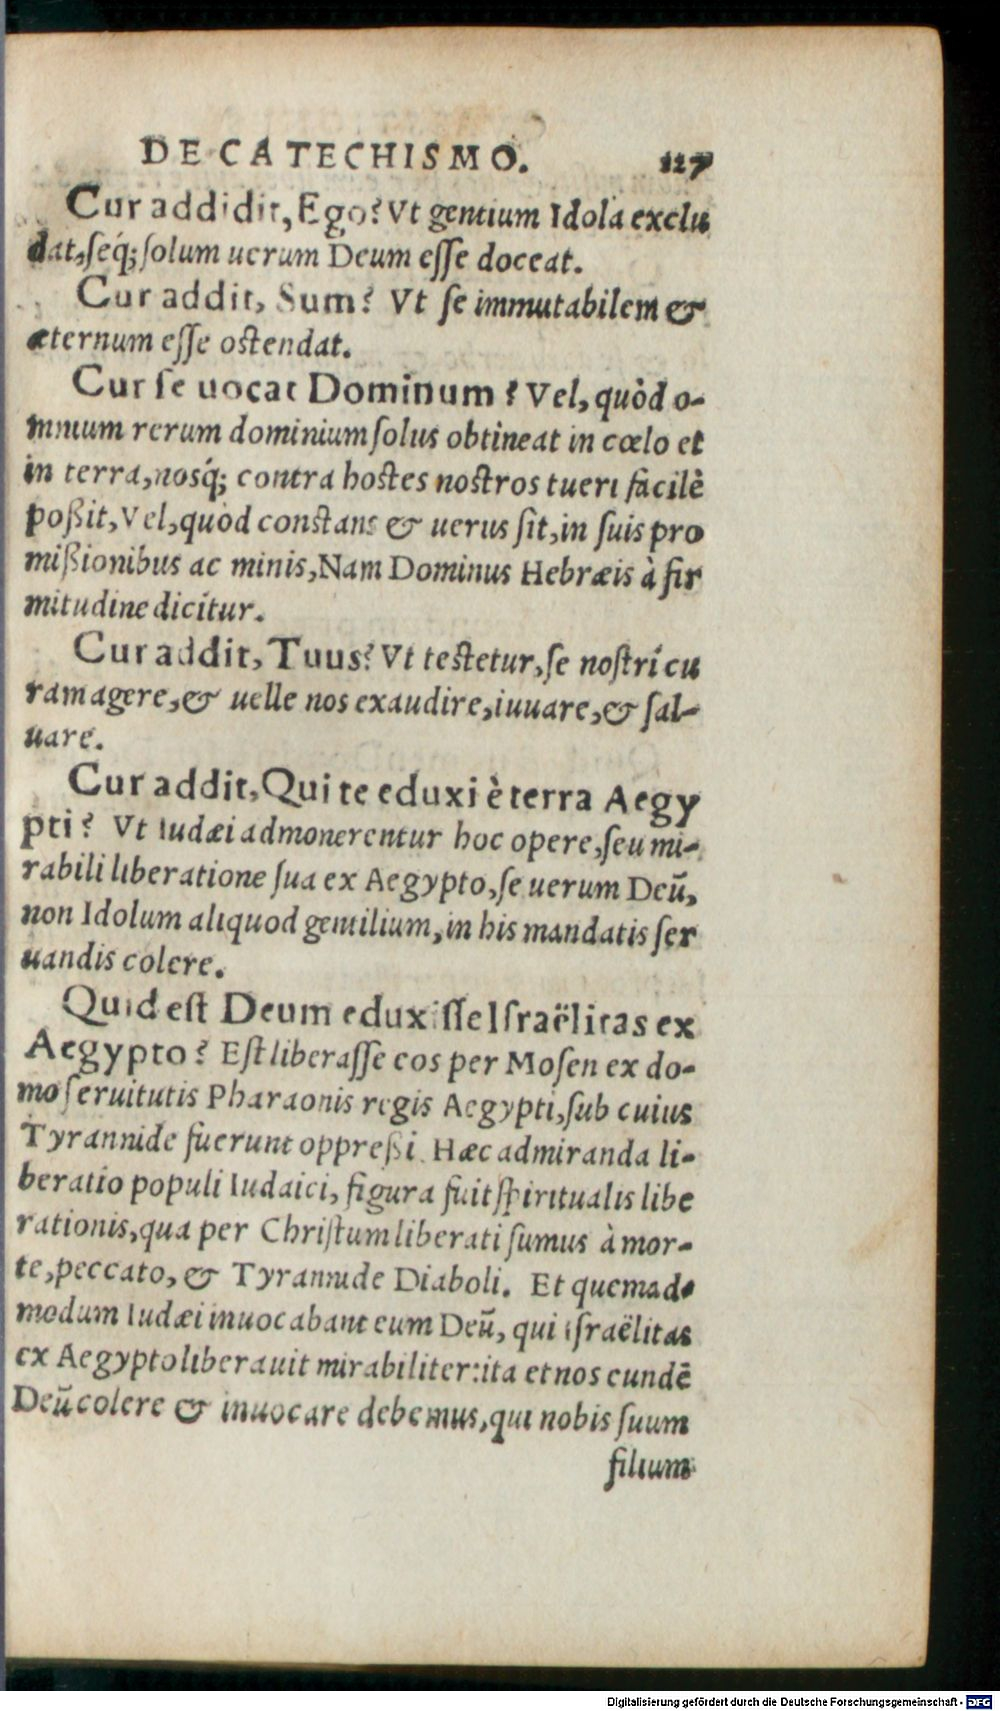 DE CATECHISMO. 127
Cur addidit, Ego? Vt gentium Idola exclu
dat, seq́; solum uerum Deum esse doceat.
Cur addit, Sum? Vt se immutabilem &
æternum esse ostendat.
Cur se uocat Dominum? Vel, quòd o-
mnium rerum dominium solus obtineat in cœlo et
in terra, nosq́; contra hostes nostros tueri facilè
poßit, Vel, quòd constans & uerus sit, in suis pro
mißionibus ac minis, Nam Dominus Hebræis à fir
mitudine dicitur.
Cur addit, Tuus? Vt testetur, se nostri cu
ram agere, & uelle nos exaudire, iuuare, & sal-
uare.
Cur addit, Qui te eduxi è terra Aegy
pti? Vt Iudæi admonerentur hoc opere, seu mi-
rabili liberatione sua ex Aegypto, se uerum Deū,
non Idolum aliquod gentilium, in his mandatis ser
uandis colere.
Quid est Deum eduxisse Israëlitas ex
Aegypto? Est liberasse eos per Mosen ex do-
mo seruitutis Pharaonis regis Aegypti, sub cuius
Tyrannide fuerunt oppreßi. Hæc admiranda li-
beratio populi Iudaici, figura fuit spiritualis libe
rationis, qua per Christum liberati sumus à mor-
te, peccato, & Tyrannide Diaboli. Et quemado
modum Iudæi inuocabant eum Deū, qui Israëlitas
ex Aegypto liberauit mirabiliter: ita et nos eundē
Deū colere & inuocare debemus, qui nobis suum
filium
Digitalisierung gefördert durch die Deutsche Forschungsgemeinschaft - DFG